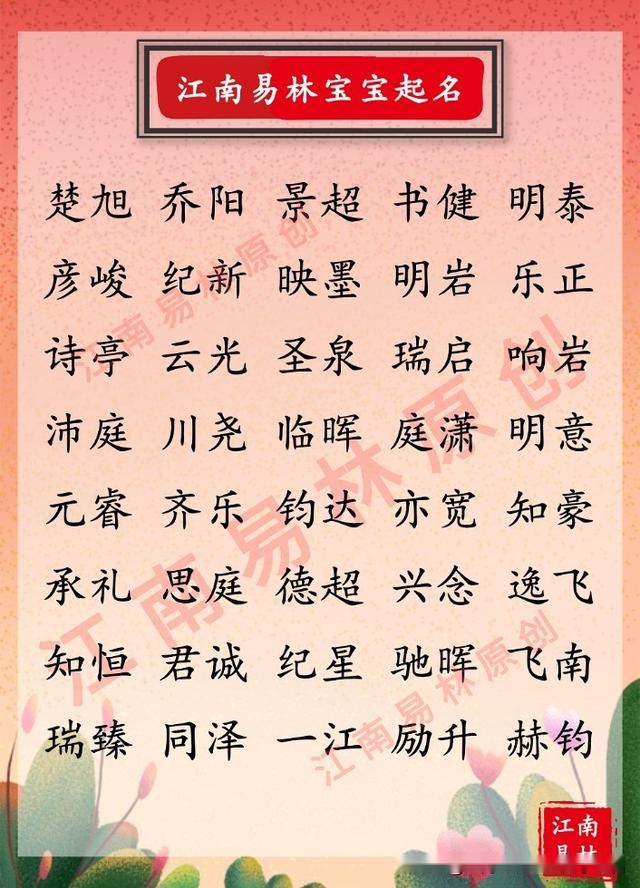 江南易林宝宝起名
楚旭 乔阳 景超 书健 明泰
彦峻 纪新 映墨 明岩 乐正
诗亭 云光 圣泉 瑞启 响岩
沛庭 川尧 临晖 庭潇 明意
元睿 齐乐 钧达 亦宽 知豪
承礼 思庭 德超 兴念 逸飞
知恒 君诚 纪星 驰晖 飞南
瑞臻 同泽 一江 励升 赫钧
江南易林原创
江南易林原创
江南易林原创
江南
易林